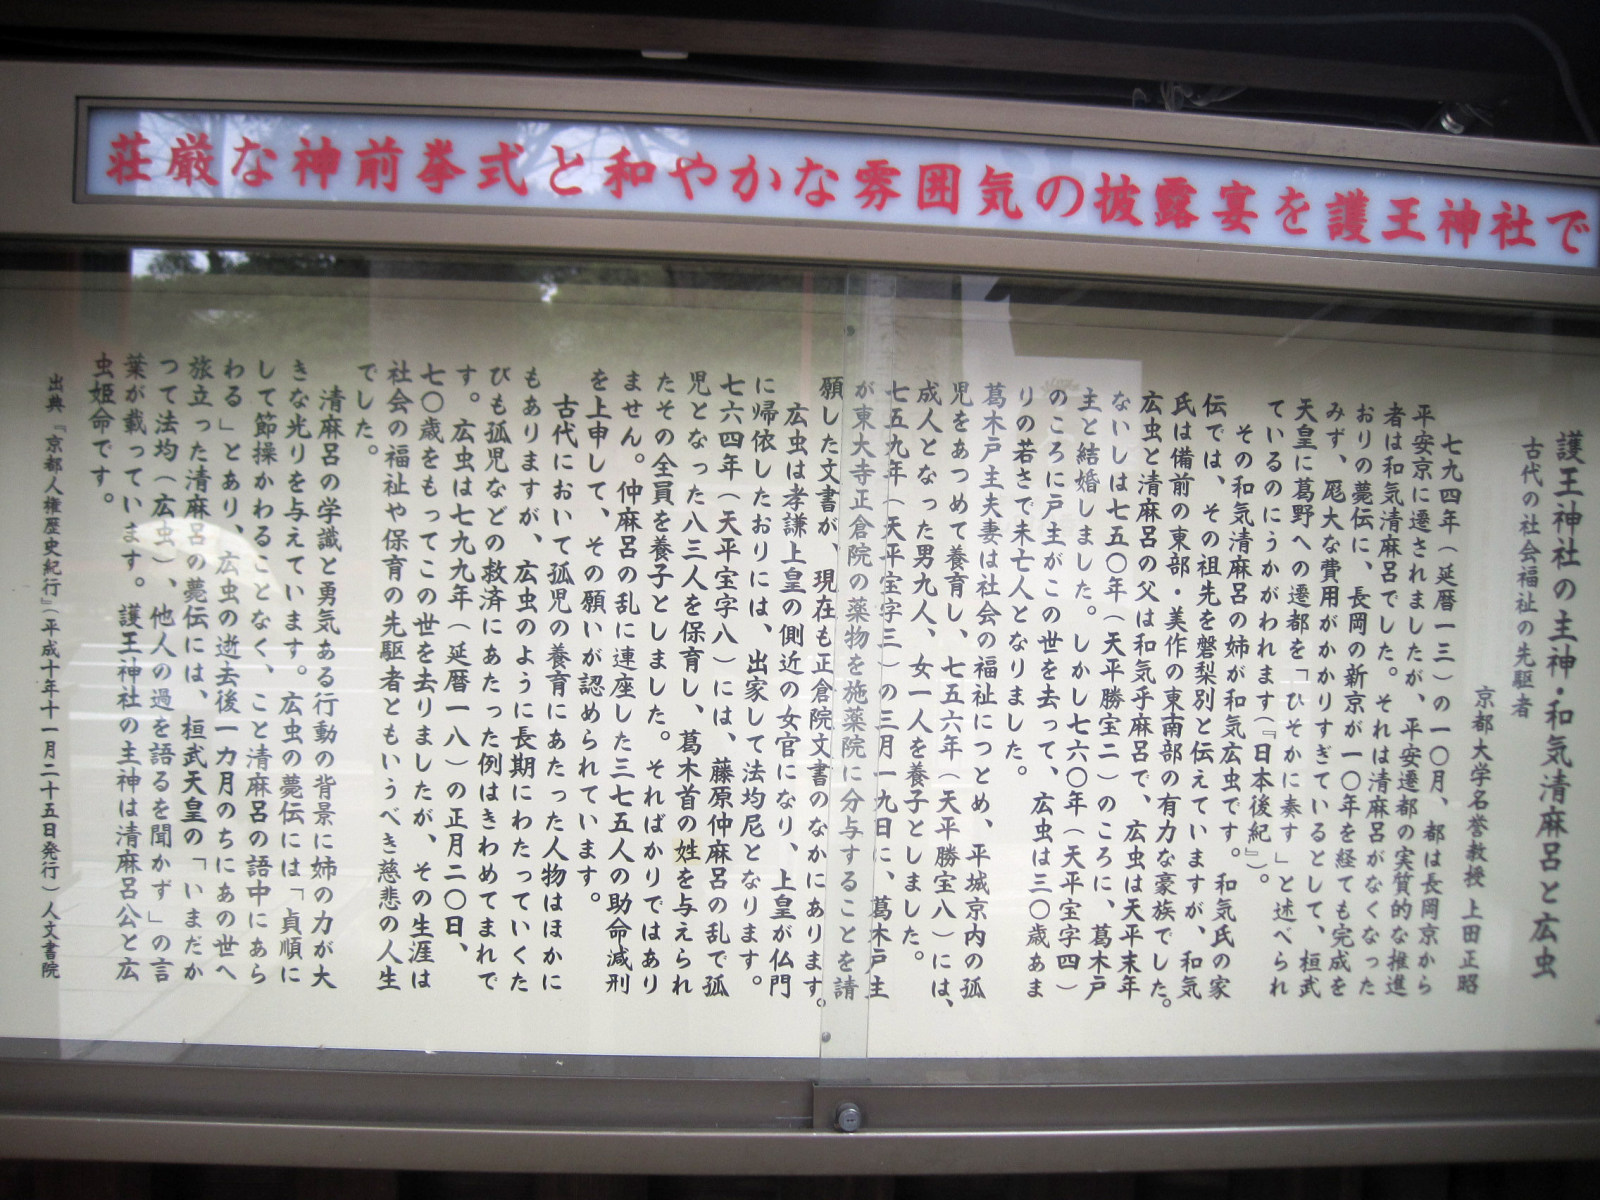 荘厳な神前挙式と和やかな雰囲気の披露宴を護王神社で
護王神社の主神・和気清麻呂と広虫
古代の社会福祉の先駆者
京都大学名誉教授 上田正昭
七九四年(延暦一三)の一〇月、都は長岡京から
平安京に遷されましたが、平安遷都の実質的な推進
者は和気清麻呂でした。それは清麻呂がなくなった
おりの薨伝に、長岡の新京が一〇年を経ても完成を
みず、尨大な費用がかかりすぎているとして、桓武
天皇に葛野への遷都を「ひそかに奏す」と述べられ
ているのにうかがわれます(『日本後紀』)。
その和気清麻呂の姉が和気広虫です。和気氏の家
伝では、その祖先を磐梨別と伝えていますが、和気
氏は備前の東部・美作の東南部の有力な豪族でした。
広虫と清麻呂の父は和気乎麻呂で、広虫は天平末年
ないしは七五〇年(天平勝宝二)のころに、葛木戸
主と結婚しました。しかし七六〇年(天平宝字四)
のころに戸主がこの世を去って、広虫は三〇歳あま
りの若さで未亡人となりました。
葛木戸主夫妻は社会の福祉につとめ、平城京内の孤
児をあつめて養育し、七五六年(天平勝宝八)には、
成人となった男九人、女一人を養子としました。
七五九年(天平宝字三)の三月一九日に、葛木戸主
が東大寺正倉院の薬物を施薬院に分与することを請
願した文書が、現在も正倉院文書のなかにあります。
広虫は孝謙上皇の側近の女官になり、上皇が仏門
に帰依したおりには、出家して法均尼となります。
七六四年(天平宝字八)には、藤原仲麻呂の乱で孤
児となった八三人を保育し、葛木首の姓を与えられ
たその全員を養子としました。そればかりではあり
ません。仲麻呂の乱に連座した三七五人の助命減刑
を上申して、その願いが認められています。
古代において孤児の養育にあたった人物はほかに
もありますが、広虫のように長期にわたっていくた
びも孤児などの救済にあたった例はきわめてまれで
す。広虫は七九九年(延暦一八)の正月二〇日、
七〇歳をもってこの世を去りましたが、その生涯は
社会の福祉や保育の先駆者ともいうべき慈悲の人生
でした。
清麻呂の学識と勇気ある行動の背景に姉の力が大
きな光りを与えています。広虫の薨伝には「貞順に
して節操かわることなく、こと清麻呂の語中にあら
わる」とあり、広虫の逝去後一カ月のちにあの世へ
旅立った清麻呂の薨伝には、桓武天皇の「いまだか
つて法均(広虫)、他人の過を語るを聞かず」の言
葉が載っています。護王神社の主神は清麻呂公と広
虫姫命です。
出典『京都人権歴史紀行』(平成十年十一月二十五日発行)人文書院